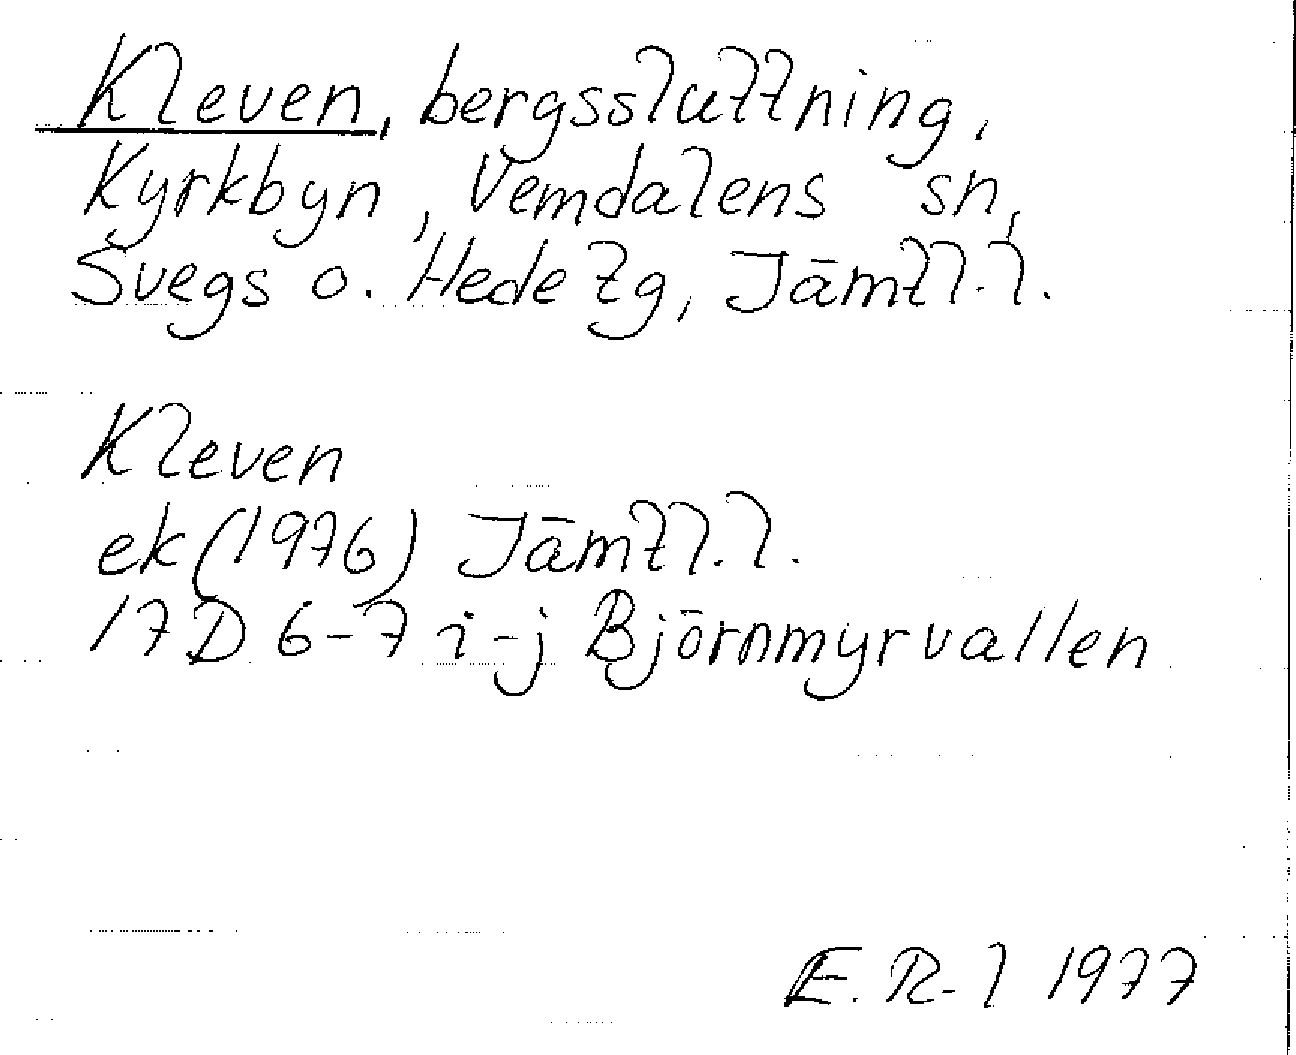 Kleven, bergssluttning,
Kyrkbyn, Vemdalens sn,
Svegs o. Hede tg, Jämtl. l.
Kleven
ek (1976) Jämtl. l.
17D 6-7 i-j Björnmyrvallen
E. R-l 1977